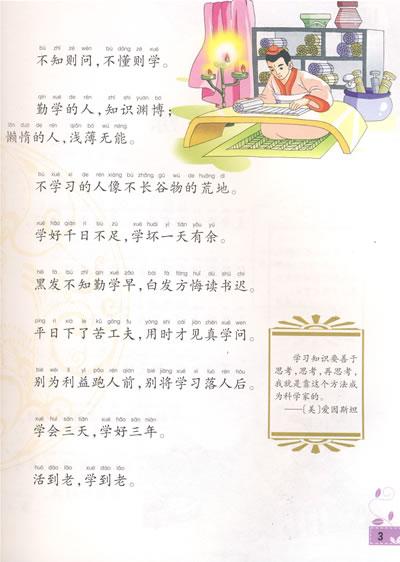 bù zhī zé wèn bù dǒng zé xué
不知则问，不懂则学。
qín xué de rén zhī shi yuān bó
勤学的人，知识渊博；
lǎn duò de rén qiǎn bó wú néng
懒惰的人，浅薄无能。
bù xué xí de rén xiàng bù zhǎng gǔ wù de huāng dì
不学习的人像不长谷物的荒地。
xué hǎo qiān rì bù zú xué huài yì tiān yǒu yú
学好千日不足，学坏一天有余。
hēi fà bù zhī qín xué zǎo bái fà fāng huǐ dú shū chí
黑发不知勤学早，白发方悔读书迟。
píng rì xià le kǔ gōng fu yòng shí cái jiàn zhēn xué wen
平日下了苦工夫，用时才见真学问。
bié wèi lì yì pǎo rén qián bié jiāng xué xí luò rén hòu
别为利益跑人前，别将学习落人后。
xué huì sān tiān xué hǎo sān nián
学会三天，学好三年。
huó dào lǎo xué dào lǎo
活到老，学到老。
学习知识要善于
思考，思考，再思考，
我就是靠这个方法成
为科学家的。
——〔美〕爱因斯坦
3